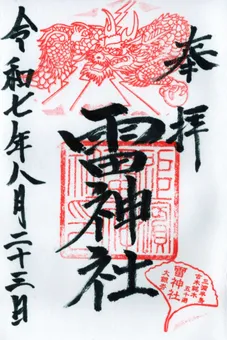 奉拝
雷神社
令和七年八月二十三日
雷神社